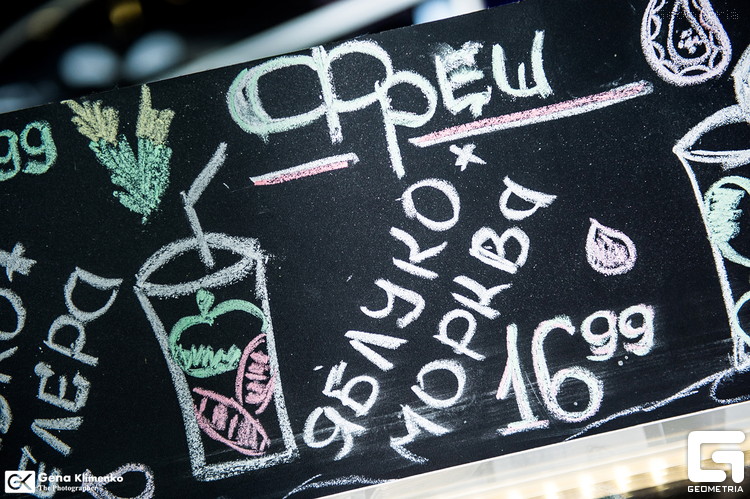 Фреш
99
яблуко
морква
16 99
лера
Gena Klimenko
The Photographer
GEOMETRIA